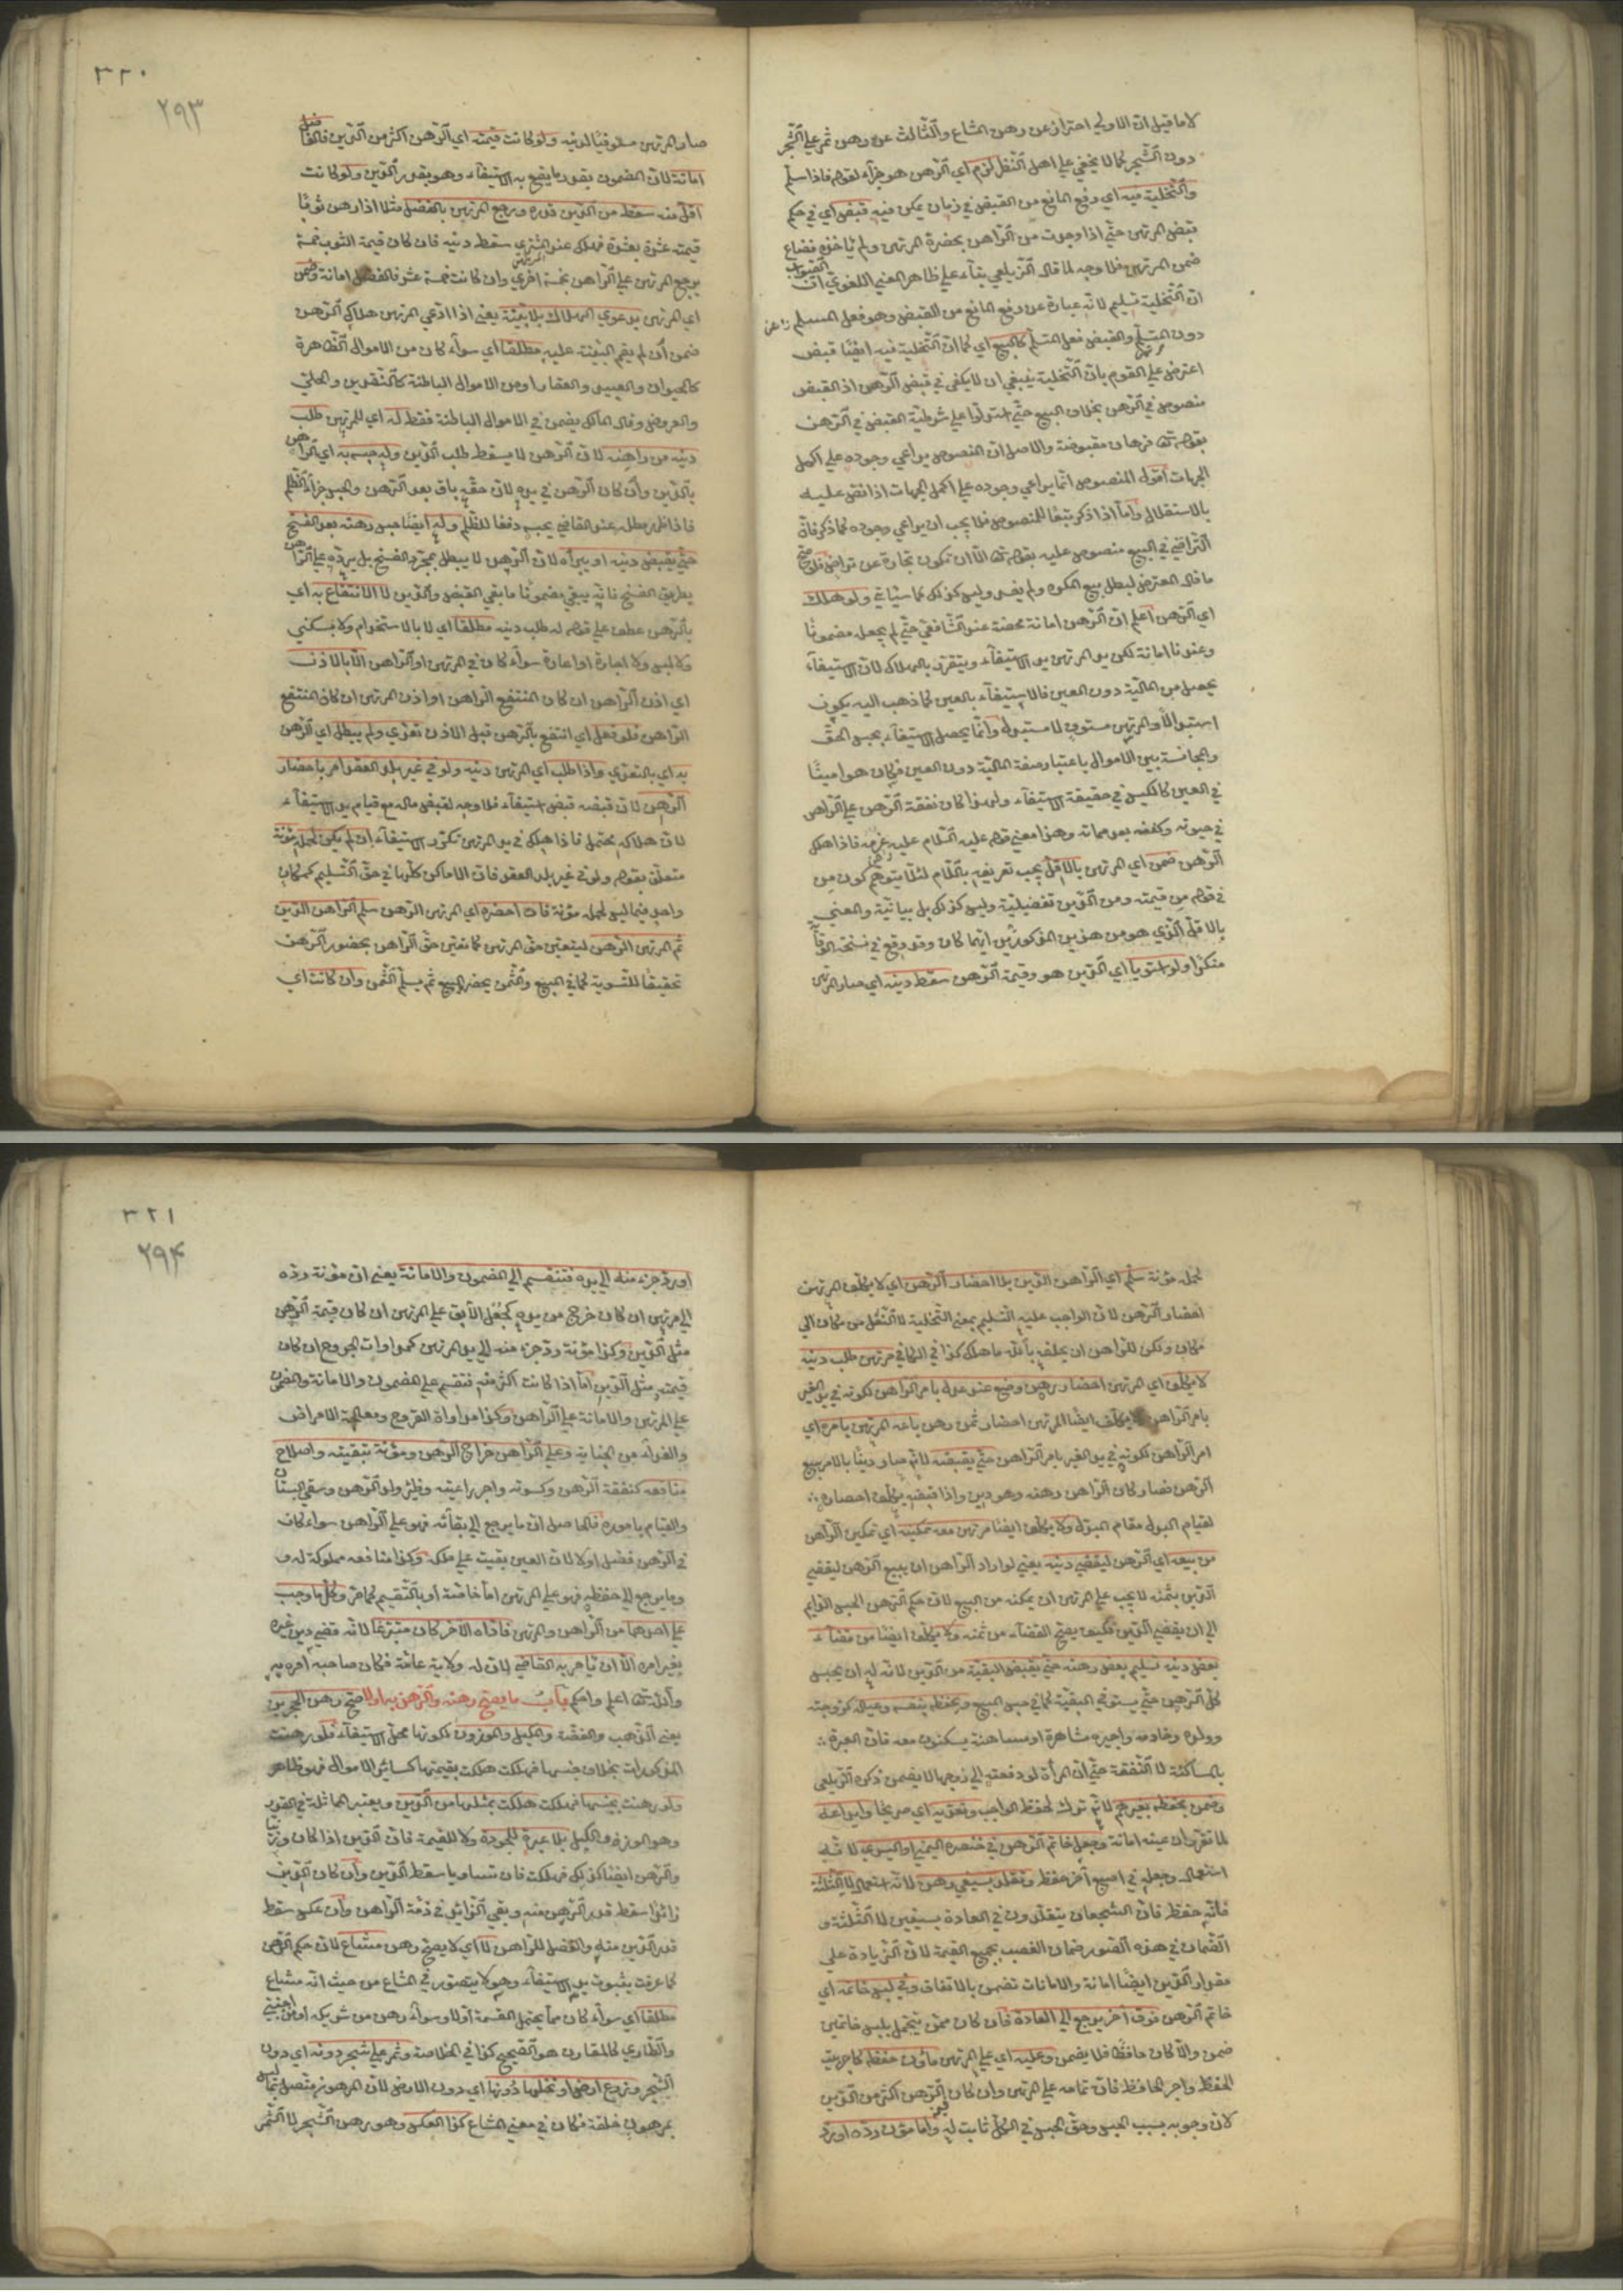 لا ما قيل ان الاولى احتراز عن رهن المشاع والثالث عن رهن ثمر على الشجر
دون الشجر كما لا يخفى على اهل النظر لزم اي الرهن هو جزاء لقوله فاذا سلم
والتخلية فيه اي رفع المانع من القبض في زمان يمكن فيه قبض اي في حكم
قبض المرتهن حتى اذا وجدت من الراهن بحضرة المرتهن ولم يأخذه فضاع
ضمن المرتهن فلا وجه لما قال الزيلعي بناء على ظاهر المعنى اللغوي ان الصواب
ان التخلية تسليم لانه عبارة عن رفع المانع من القبض وهو فعل المسلم
دون المتسلم والقبض فعل المتسلم كالبيع اي كما ان التخلية فيه ايضا قبض
اعترض على القوم بان التخلية ينبغي ان لا يكفى في قبض الرهن اذ القبض
منصوص في الرهن بخلاف البيع حتى استدلوا على شرطية القبض في الرهن
بقوله تعالى فرهان مقبوضة والاصل ان المنصوص يراعى وجوده على اكمل
الجهات اقول المنصوص انما يراعى وجوده على اكمل الجهات اذا نص عليه
بالاستقلال واما اذا ذكر تبعا للمنصوص فلا يجب ان يراعى وجوده كما ذكر فان
التراضي في البيع منصوص عليه بقوله تعالى الا ان تكون تجارة عن تراض فلو صح
ما قال المعترض لبطل بيع المكره ولم يفسد وليس كذلك كما سيأتي ولو هلك
اي الرهن اعلم ان الرهن امانة محضة عند الشافعي حتى لم يجعل مضمونا
وعندنا امانة لكن يد المرتهن يد الاستيفاء ويتقرر بالهلاك لان الاستيفاء
يحصل من المالية دون العين فالاستيفاء بالعين كما ذهب اليه يكون
استبدالا والمرتهن مستوف لا مستبدل وانما يحصل الاستيفاء بحبس الحق
والمجانسة بين الاموال باعتبار صفة المالية دون العين فكان هو امينا
في العين كالكيس في حقيقة الاستيفاء ولهذا كان نفقة الرهن على الراهن
في حيوته وكفنه بعد مماته وهذا معنى قوله عليه السلام عليه غرمه فاذا هلك
الرهن ضمن اي المرتهن بالاقل يجب تعريفه باللام لئلا يتوهم كون من
في قوله من قيمته ومن الدين تفضيلية وليس كذلك بل بيانية والمعنى
بالاقل الذي هو من هذين المذكورين ايهما كان وقد وقع في نسخة الوقاية
منكرا ولو استويا اي الدين هو وقيمة الرهن سقط دينه اي صار المرتهن
٣٢٠
٢٩٣
صار المرتهن مستوفيا لدينه ولو كانت قيمته اي الرهن اكثر من الدين فالفضل
امانة لان المضمون بقدر ما يقع به الاستيفاء وهو بقدر الدين ولو كانت
اقل منه سقط من الدين قدره ورجع المرتهن بالفضل مثلا اذا رهن ثوبا
قيمته عشرة بعشرة فهلك عند المشتري المرتهن سقط دينه فان كان قيمة الثوب خمسة
يرجع المرتهن على الراهن بخمسة اخرى وان كانت خمسة عشر فالفضل امانة وضمن
اي المرتهن بدعوى الهلاك بلا بينة يعني اذا ادعى المرتهن هلاك الرهن
ضمن ان لم يقم البينة عليه مطلقا اي سواء كان من الاموال الظاهرة
كالحيوان والعبيد والعقار او من الاموال الباطنة كالنقدين والحلي
والعروض وقال مالك يضمن في الاموال الباطنة فقط له اي للمرتهن طلب
دينه من راهنه لان الرهن لا يسقط طلب الدين وله حبسه به اي الراهن
بالدين وان كان الرهن في يده لان حقه باق بعد الرهن والحبس جزاء الظلم
فاذا ظهر مطله عند القاضي يحبسه دفعا للظلم وله ايضا حبس رهنه بعد الفسخ
حتى يقبض دينه او يبرأه لان الرهن لا يبطل بمجرد الفسخ بل يرده على الراهن
بطريق الفسخ فانه يبقى مضمونا ما بقي القبض والدين لا الانتفاع به اي
بالرهن عطف على قوله له طلب دينه مطلقا اي لا بالاستخدام ولا بسكنى
ولا لبس ولا اجارة او اعارة سواء كان في المرتهن او الراهن الا بالاذن
اي اذن الراهن ان كان المنتفع الراهن او اذن المرتهن ان كان المنتفع
الراهن فلو فعل اي انتفع بالرهن قبل الاذن تعدي ولم يبطل اي الرهن
به اي بالتعدي واذا طلب اي المرتهن دينه ولو في غير بلد العقد امر باحضار
الرهن لان قبضه قبض استيفاء فلا وجه لقبض ماله مع قيام يد الاستيفاء
لان هلاكه محتمل فاذا هلك في يد المرتهن تكرر الاستيفاء ان لم يكن لحمله مؤنة
متعلق بقوله ولو في غير بلد العقد فان الاماكن كلها في حق التسليم كمكان
واحد فيما ليس لحمله مؤنة فان احضره اي المرتهن الرهن سلم الراهن الدين
ثم المرتهن الرهن ليتعين حق المرتهن كما تعين حق الراهن بحضور الرهن
تحقيقا للتسوية كما في المبيع والثمن يحضر المبيع ثم يسلم الثمن وان كانت اي
لحمله مؤنة سلم اي الراهن الدين بلا احضار الرهن اي لا يكلف المرتهن
احضار الرهن لان الواجب عليه التسليم بمعنى التخلية لا النقل من مكان الى
مكان ولكن للراهن ان يحلفه بالله ما هلك كذا في الكافي مرتهن طلب دينه
لا يكلف اي المرتهن احضار رهن وضع عند عدل بامر الراهن لكونه في يد الغير
بامر الراهن ولا يكلف ايضا المرتهن احضار ثمن رهن باعه المرتهن بامره اي
امر الراهن لكونه في يد الغير بامر الراهن حتى يقبضه لانه صار دينا بالامر ببيع
الرهن فصار كان الراهن رهنه وهو دين واذا قبضه يكلف احضاره
لقيام البدل مقام المبدل ولا يكلف ايضا مرتهن معه تمكينه اي تمكين الراهن
من بيعه اي الرهن ليقضي دينه يعني لو اراد الراهن ان يبيع الرهن ليقضي
الدين بثمنه لا يجب على المرتهن ان يمكنه من البيع لان حكم الرهن الحبس الدائم
الى ان يقضي الدين فكيف يصح القضاء من ثمنه ولا يكلف ايضا من قضاء
بعض دينه تسليم بعض رهنه حتى يقبض البقية من الدين لانه له ان يحبس
كل الرهن حتى يستوفي البقية كما في حبس المبيع ويحفظه بنفسه وعياله كزوجته
وولده وخادمه واجيره مشاهرة او مساهنة يسكنون معه فان العبرة
بالمساكنة لا النفقة حتى ان المرأة لو دفعته الى زوجها لا يضمن ذكره الزيلعي
وضمن بحفظه بغيرهم لانه ترك الحفظ الواجب وتعديه اي صريحا وايداعه
لما تقرر ان عينه امانة وجعل خاتم الرهن في خنصره اليمنى او اليسرى لانه
استعمال وجعله في اصبع آخر حفظ وتقلد بسيفي رهن لانه استعمال لا الثلثة
فانه حفظ فان الشجعان يتقلدون في العادة بسيفين لا الثلثة و
الضمان في هذه الصور ضمان الغصب بجميع القيمة لان الزيادة على
مقدار الدين ايضا امانة والامانات تضمن بالاتفاق وفي لبس خاتمه اي
خاتم الرهن فوق آخر يرجع الى العادة فان كان ممن يتجمل بلبس خاتمين
ضمن والا كان حافظا فلا يضمن وعليه اي على المرتهن مؤن حفظه كاجر بيت
الحفظ واجر الحافظ فان تمامه على المرتهن وان كان قيمة الرهن اكثر من الدين
لان وجوبه بسبب الحبس وحق الحبس في الكل ثابت له واما مؤن رده او رد
٣٢١
٢٩٤
او رد جزء منه الى يده فتنقسم الى المضمون والامانة يعني ان مؤنة رده
الى المرتهن ان كان خرج من يده كجعل الآبق على المرتهن ان كان قيمة الرهن
مثل الدين وكذا مؤنة رد جزء منه الى يد المرتهن كمداواة الجروح ان كان
قيمته مثل الدين اما اذا كانت اكثر منه فتقسم على المضمون والامانة والمضمون
على المرتهن والامانة على الراهن وكذا مداواة القروح ومعالجة الامراض
والفداء من الجناية وعلى الراهن خراج الرهن ومؤنة تبقيته واصلاح
منافعه كنفقة الرهن وكسوته واجر راعيته وظئر ولد الرهن وسقي البستان
والقيام باموره فالحاصل ان ما يرجع الى بقائه فهو على الراهن سواء كان
في الرهن فضل او لا لان العين بقيت على ملكه وكذا منافعه مملوكة له و
وما يرجع الى حفظه فهو على المرتهن اما خاصة او بالتقسيم كما مر وكل ما وجب
على احدهما من الراهن والمرتهن فاداه الآخر كان متبرعا لانه قضى دين غيره
بغير امره الا ان يأمر به القاضي لان له ولاية عامة فكان صاحبه امره به
والله تعالى اعلم واحكم باب ما يصح رهنه والرهن به او لا صح رهن الحجرين
يعني الذهب والفضة والمكيل والموزون لكونها محل الاستيفاء فلو رهنت
المذكورات بخلاف جنسها فهلكت هلكت بقيمتها كسائر الاموال فهو ظاهر
ولو رهنت بجنسها فهلكت هلكت بمثلها من الدين ويعتبر المماثلة في القدر
وهو الوزن والكيل بلا عبرة للجودة ولا للقيمة فان الدين اذا كان وزنيا
والرهن ايضا كذلك فهلكت فان تساويا سقط الدين وان كان الدين
زائدا سقط قدر الرهن منه وبقي الزائد في ذمة الراهن وان عكس سقط
قدر الدين منه والفضل للراهن لا اي لا يصح رهن مشاع لان حكم الرهن
كما عرفت بثبوت يد الاستيفاء وهو لا يتصور في المشاع من حيث انه مشاع
مطلقا اي سواء كان مما يحتمل القسمة او لا وسواء رهن من شريكه او من اجنبي
والطاري كالمقارن هو الصحيح كذا في الخلاصة وثمر على شجر دونه اي دون
الشجر وزرع ارض او نخلها دونها اي دون الارض لان المرهون متصل بما ليس
بمرهون خلقة فكان في معنى المشاع كذا العكس وهو رهن الشجر لا الثمر